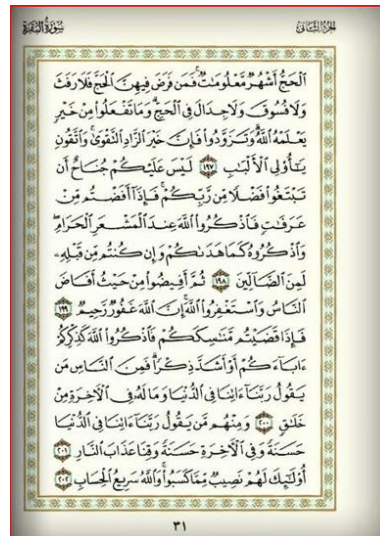 الجزء الثاني
سورة البقرة
ٱلۡحَجُّ أَشۡهُرٞ مَّعۡلُومَٰتٞۚ فَمَن فَرَضَ فِيهِنَّ ٱلۡحَجَّ فَلَا رَفَثَ
وَلَا فُسُوقَ وَلَا جِدَالَ فِي ٱلۡحَجِّۗ وَمَا تَفۡعَلُواْ مِنۡ خَيۡرٖ
يَعۡلَمۡهُ ٱللَّهُۗ وَتَزَوَّدُواْ فَإِنَّ خَيۡرَ ٱلزَّادِ ٱلتَّقۡوَىٰۖ وَٱتَّقُونِ
يَٰٓأُوْلِي ٱلۡأَلۡبَٰبِ ١٩٧ لَيۡسَ عَلَيۡكُمۡ جُنَاحٌ أَن
تَبۡتَغُواْ فَضۡلٗا مِّن رَّبِّكُمۡۚ فَإِذَآ أَفَضۡتُم مِّنۡ
عَرَفَٰتٖ فَٱذۡكُرُواْ ٱللَّهَ عِندَ ٱلۡمَشۡعَرِ ٱلۡحَرَامِۖ
وَٱذۡكُرُوهُ كَمَا هَدَىٰكُمۡ وَإِن كُنتُم مِّن قَبۡلِهِۦ
لَمِنَ ٱلضَّآلِّينَ ١٩٨ ثُمَّ أَفِيضُواْ مِنۡ حَيۡثُ أَفَاضَ
ٱلنَّاسُ وَٱسۡتَغۡفِرُواْ ٱللَّهَۚ إِنَّ ٱللَّهَ غَفُورٞ رَّحِيمٞ ١٩٩
فَإِذَا قَضَيۡتُم مَّنَٰسِكَكُمۡ فَٱذۡكُرُواْ ٱللَّهَ كَذِكۡرِكُمۡ
ءَابَآءَكُمۡ أَوۡ أَشَدَّ ذِكۡرٗاۗ فَمِنَ ٱلنَّاسِ مَن
يَقُولُ رَبَّنَآ ءَاتِنَا فِي ٱلدُّنۡيَا وَمَا لَهُۥ فِي ٱلۡأٓخِرَةِ مِنۡ
خَلَٰقٖ ٢٠٠ وَمِنۡهُم مَّن يَقُولُ رَبَّنَآ ءَاتِنَا فِي ٱلدُّنۡيَا
حَسَنَةٗ وَفِي ٱلۡأٓخِرَةِ حَسَنَةٗ وَقِنَا عَذَابَ ٱلنَّارِ ٢٠١
أُوْلَٰٓئِكَ لَهُمۡ نَصِيبٞ مِّمَّا كَسَبُواْۚ وَٱللَّهُ سَرِيعُ ٱلۡحِسَابِ ٢٠٢
٣١